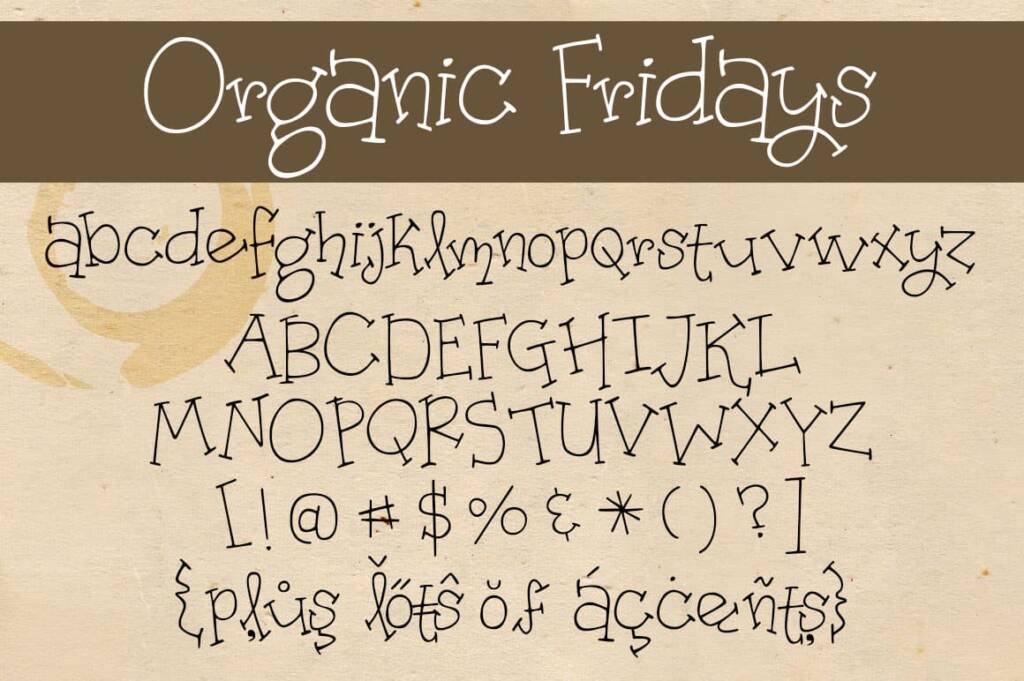 Organic Fridays
abcdefghijklmnopqrstuvwxyz
ABCDEFGHIJKL
MNOPQRSTUVWXYZ
[!@#$%&*()?]
{pļůş ľőŧŝ ŏf áçċeñŧș}